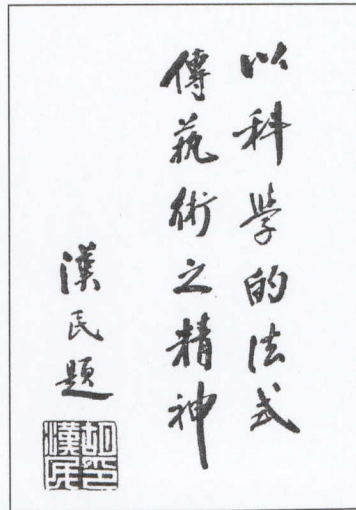 以科學的法式
傳藝術之精神
漢民題
胡印漢民